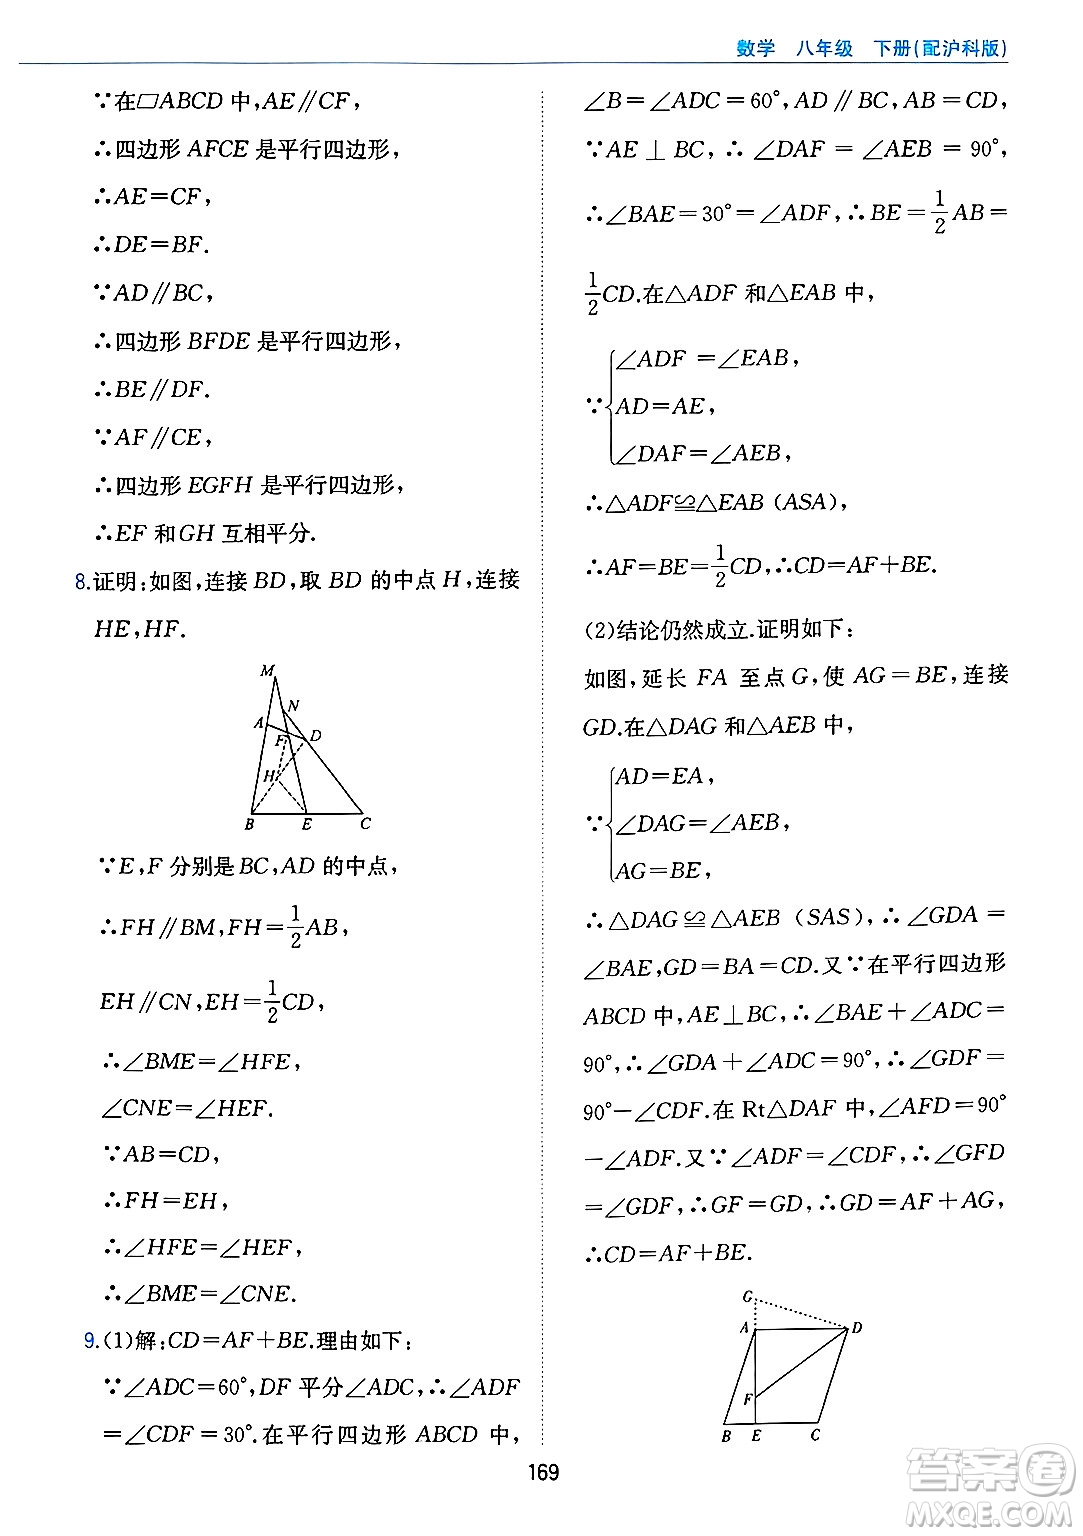 数学 八年级 下册(配沪科版)
∵在▱ABCD 中,AE∥CF,
∴四边形 AFCE 是平行四边形,
∴AE=CF,
∴DE=BF.
∵AD∥BC,
∴四边形 BFDE 是平行四边形,
∴BE∥DF.
∵AF∥CE,
∴四边形 EGFH 是平行四边形,
∴EF 和 GH 互相平分.
8.证明:如图,连接 BD,取 BD 的中点 H,连接
HE,HF.
M
N
A
F
D
H
B E C
∵E,F 分别是 BC,AD 的中点,
∴FH∥BM,FH=1/2AB,
EH∥CN,EH=1/2CD,
∴∠BME=∠HFE,
∠CNE=∠HEF.
∵AB=CD,
∴FH=EH,
∴∠HFE=∠HEF,
∴∠BME=∠CNE.
9.(1)解:CD=AF+BE.理由如下:
∵∠ADC=60°,DF 平分∠ADC,∴∠ADF
=∠CDF=30°.在平行四边形 ABCD 中,
∠B=∠ADC=60°,AD∥BC,AB=CD,
∵AE⊥BC,∴∠DAF=∠AEB=90°,
∴∠BAE=30°=∠ADF,∴BE=1/2AB=
1/2CD.在△ADF 和△EAB 中,
∠ADF=∠EAB,
∵AD=AE,
∠DAF=∠AEB,
∴△ADF≌△EAB(ASA),
∴AF=BE=1/2CD,∴CD=AF+BE.
(2)结论仍然成立.证明如下:
如图,延长 FA 至点 G,使 AG=BE,连接
GD.在△DAG 和△AEB 中,
AD=EA,
∵∠DAG=∠AEB,
AG=BE,
∴△DAG≌△AEB(SAS),∴∠GDA=
∠BAE,GD=BA=CD.又∵在平行四边形
ABCD 中,AE⊥BC,∴∠BAE+∠ADC=
90°,∴∠GDA+∠ADC=90°,∴∠GDF=
90°-∠CDF.在 Rt△DAF 中,∠AFD=90°
-∠ADF.又∵∠ADF=∠CDF,∴∠GFD
=∠GDF,∴GF=GD,∴GD=AF+AG,
∴CD=AF+BE.
G
A D
F
B E C
169
答案圈
MXQE.COM